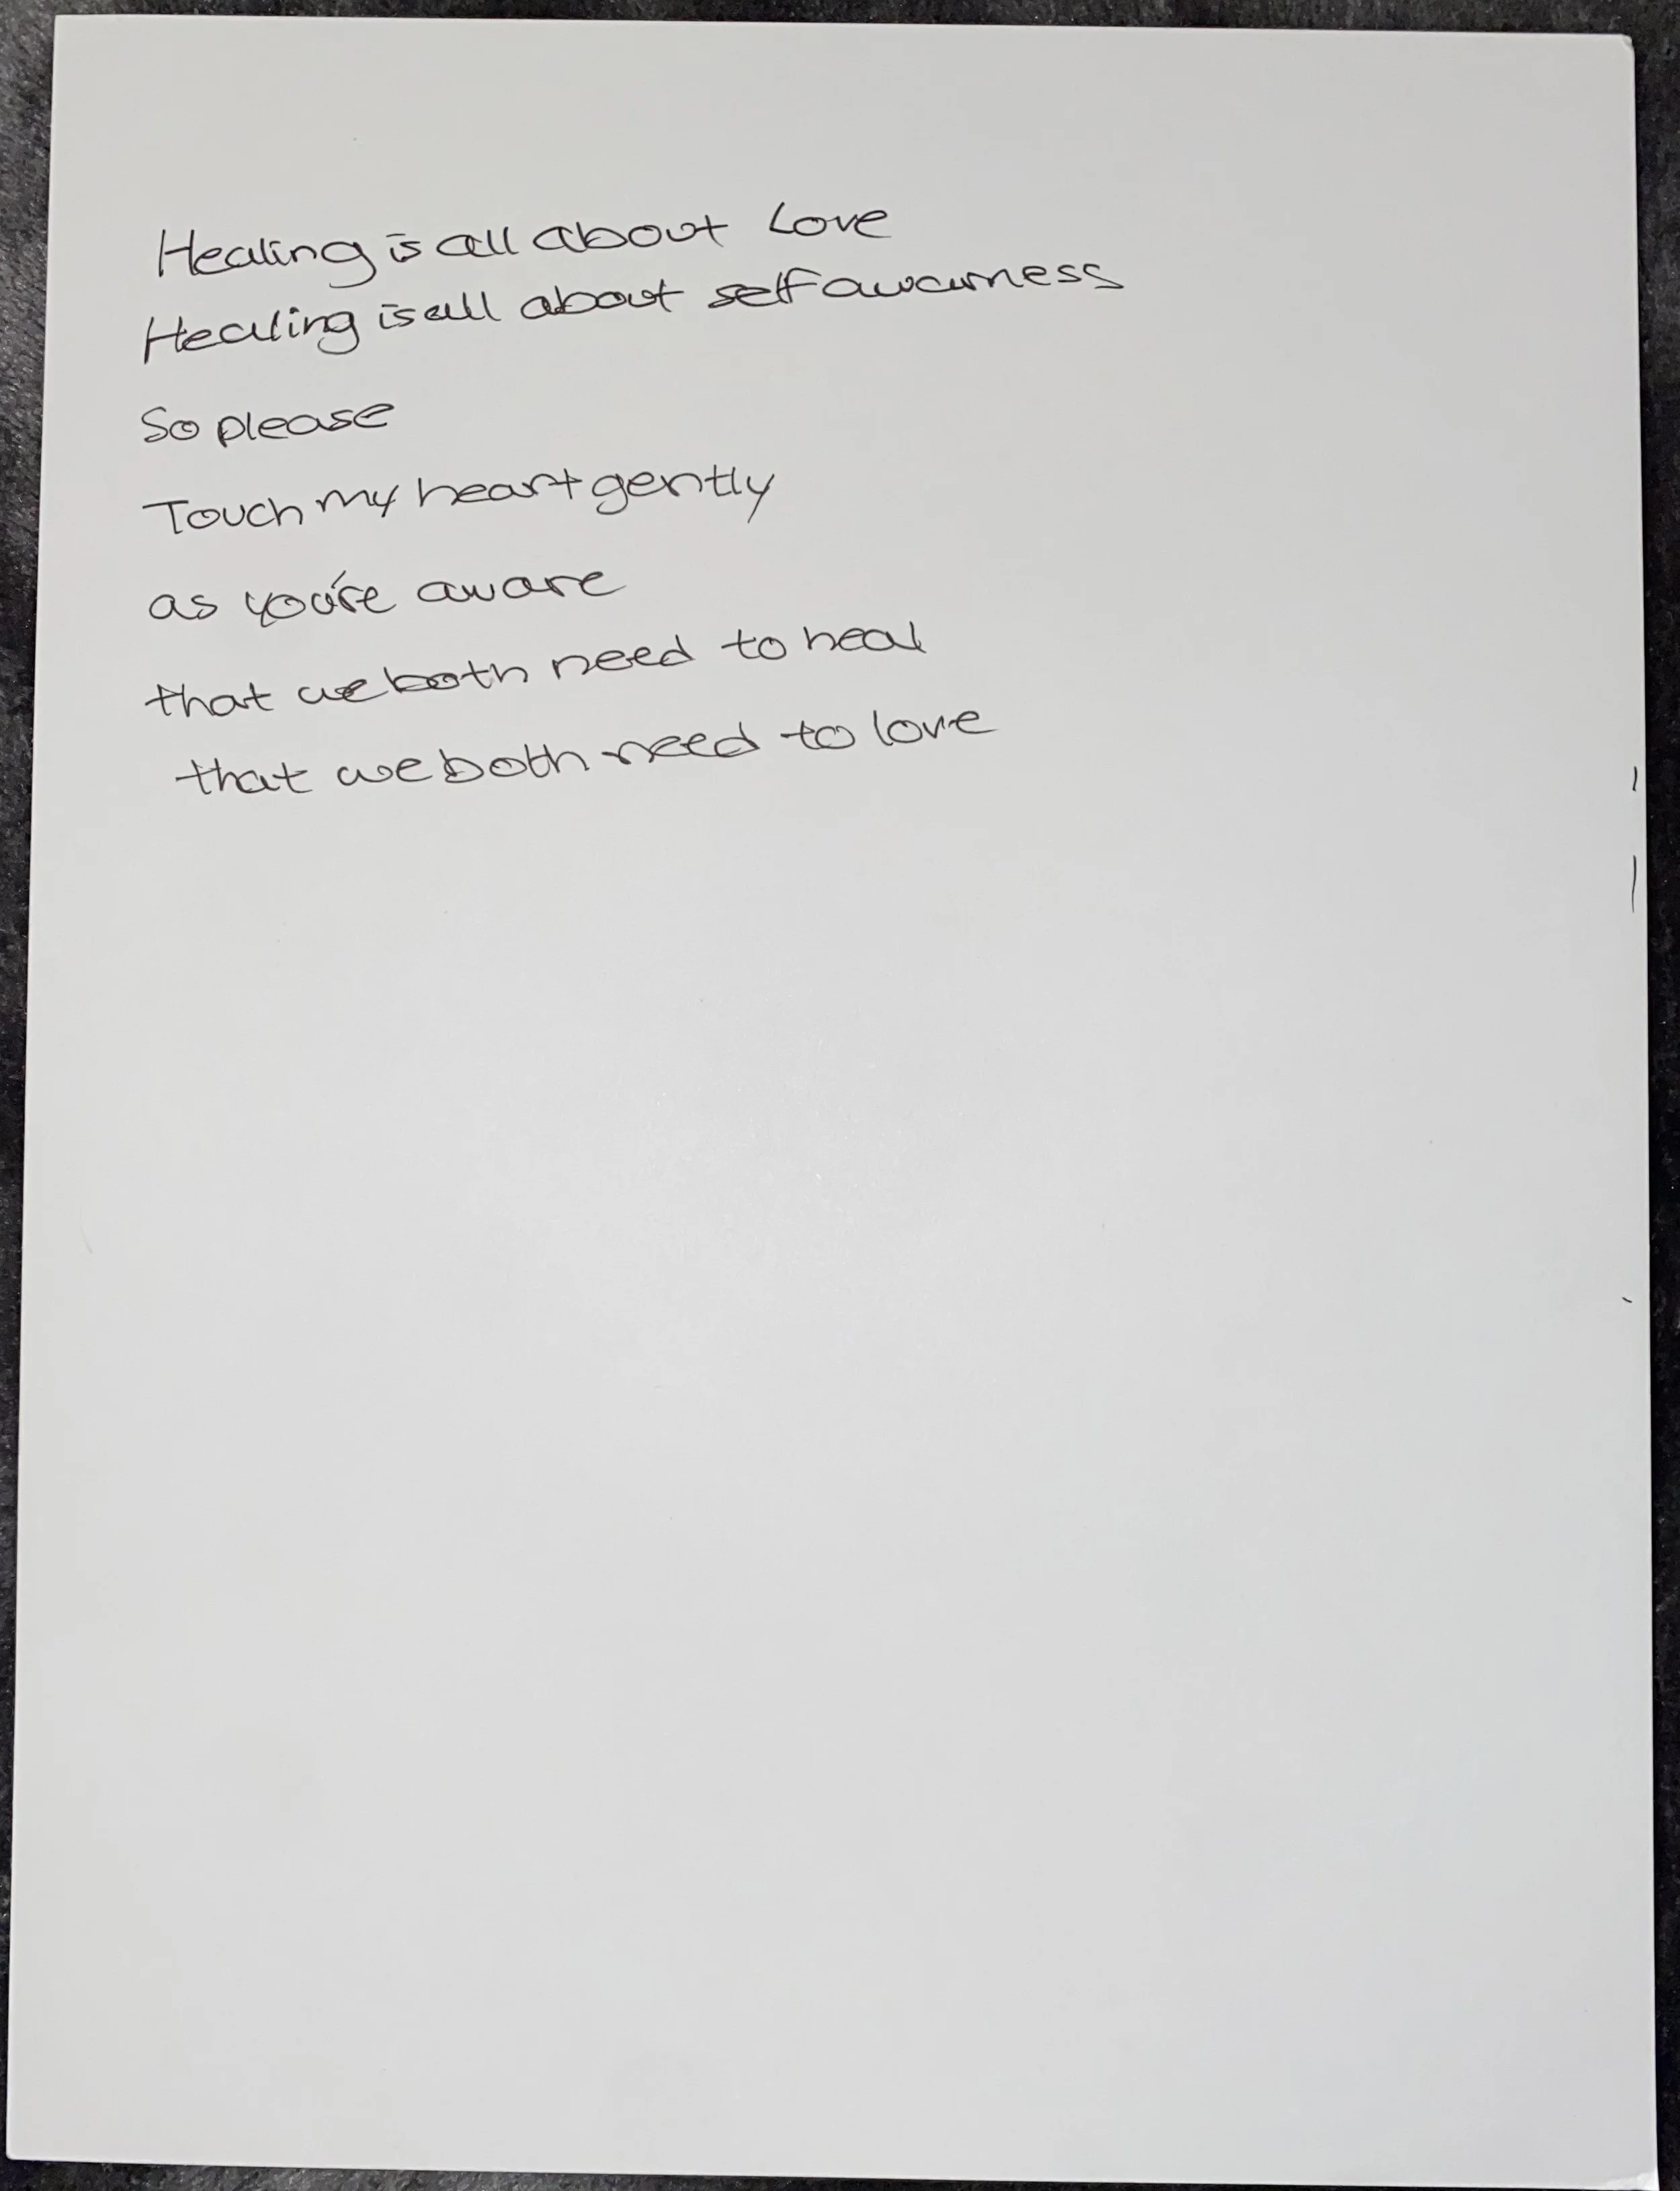 Healing is all about Love
Healing is all about self awarness
So please
Touch my heart gently
as you're aware
that we both need to heal
that we both need to love